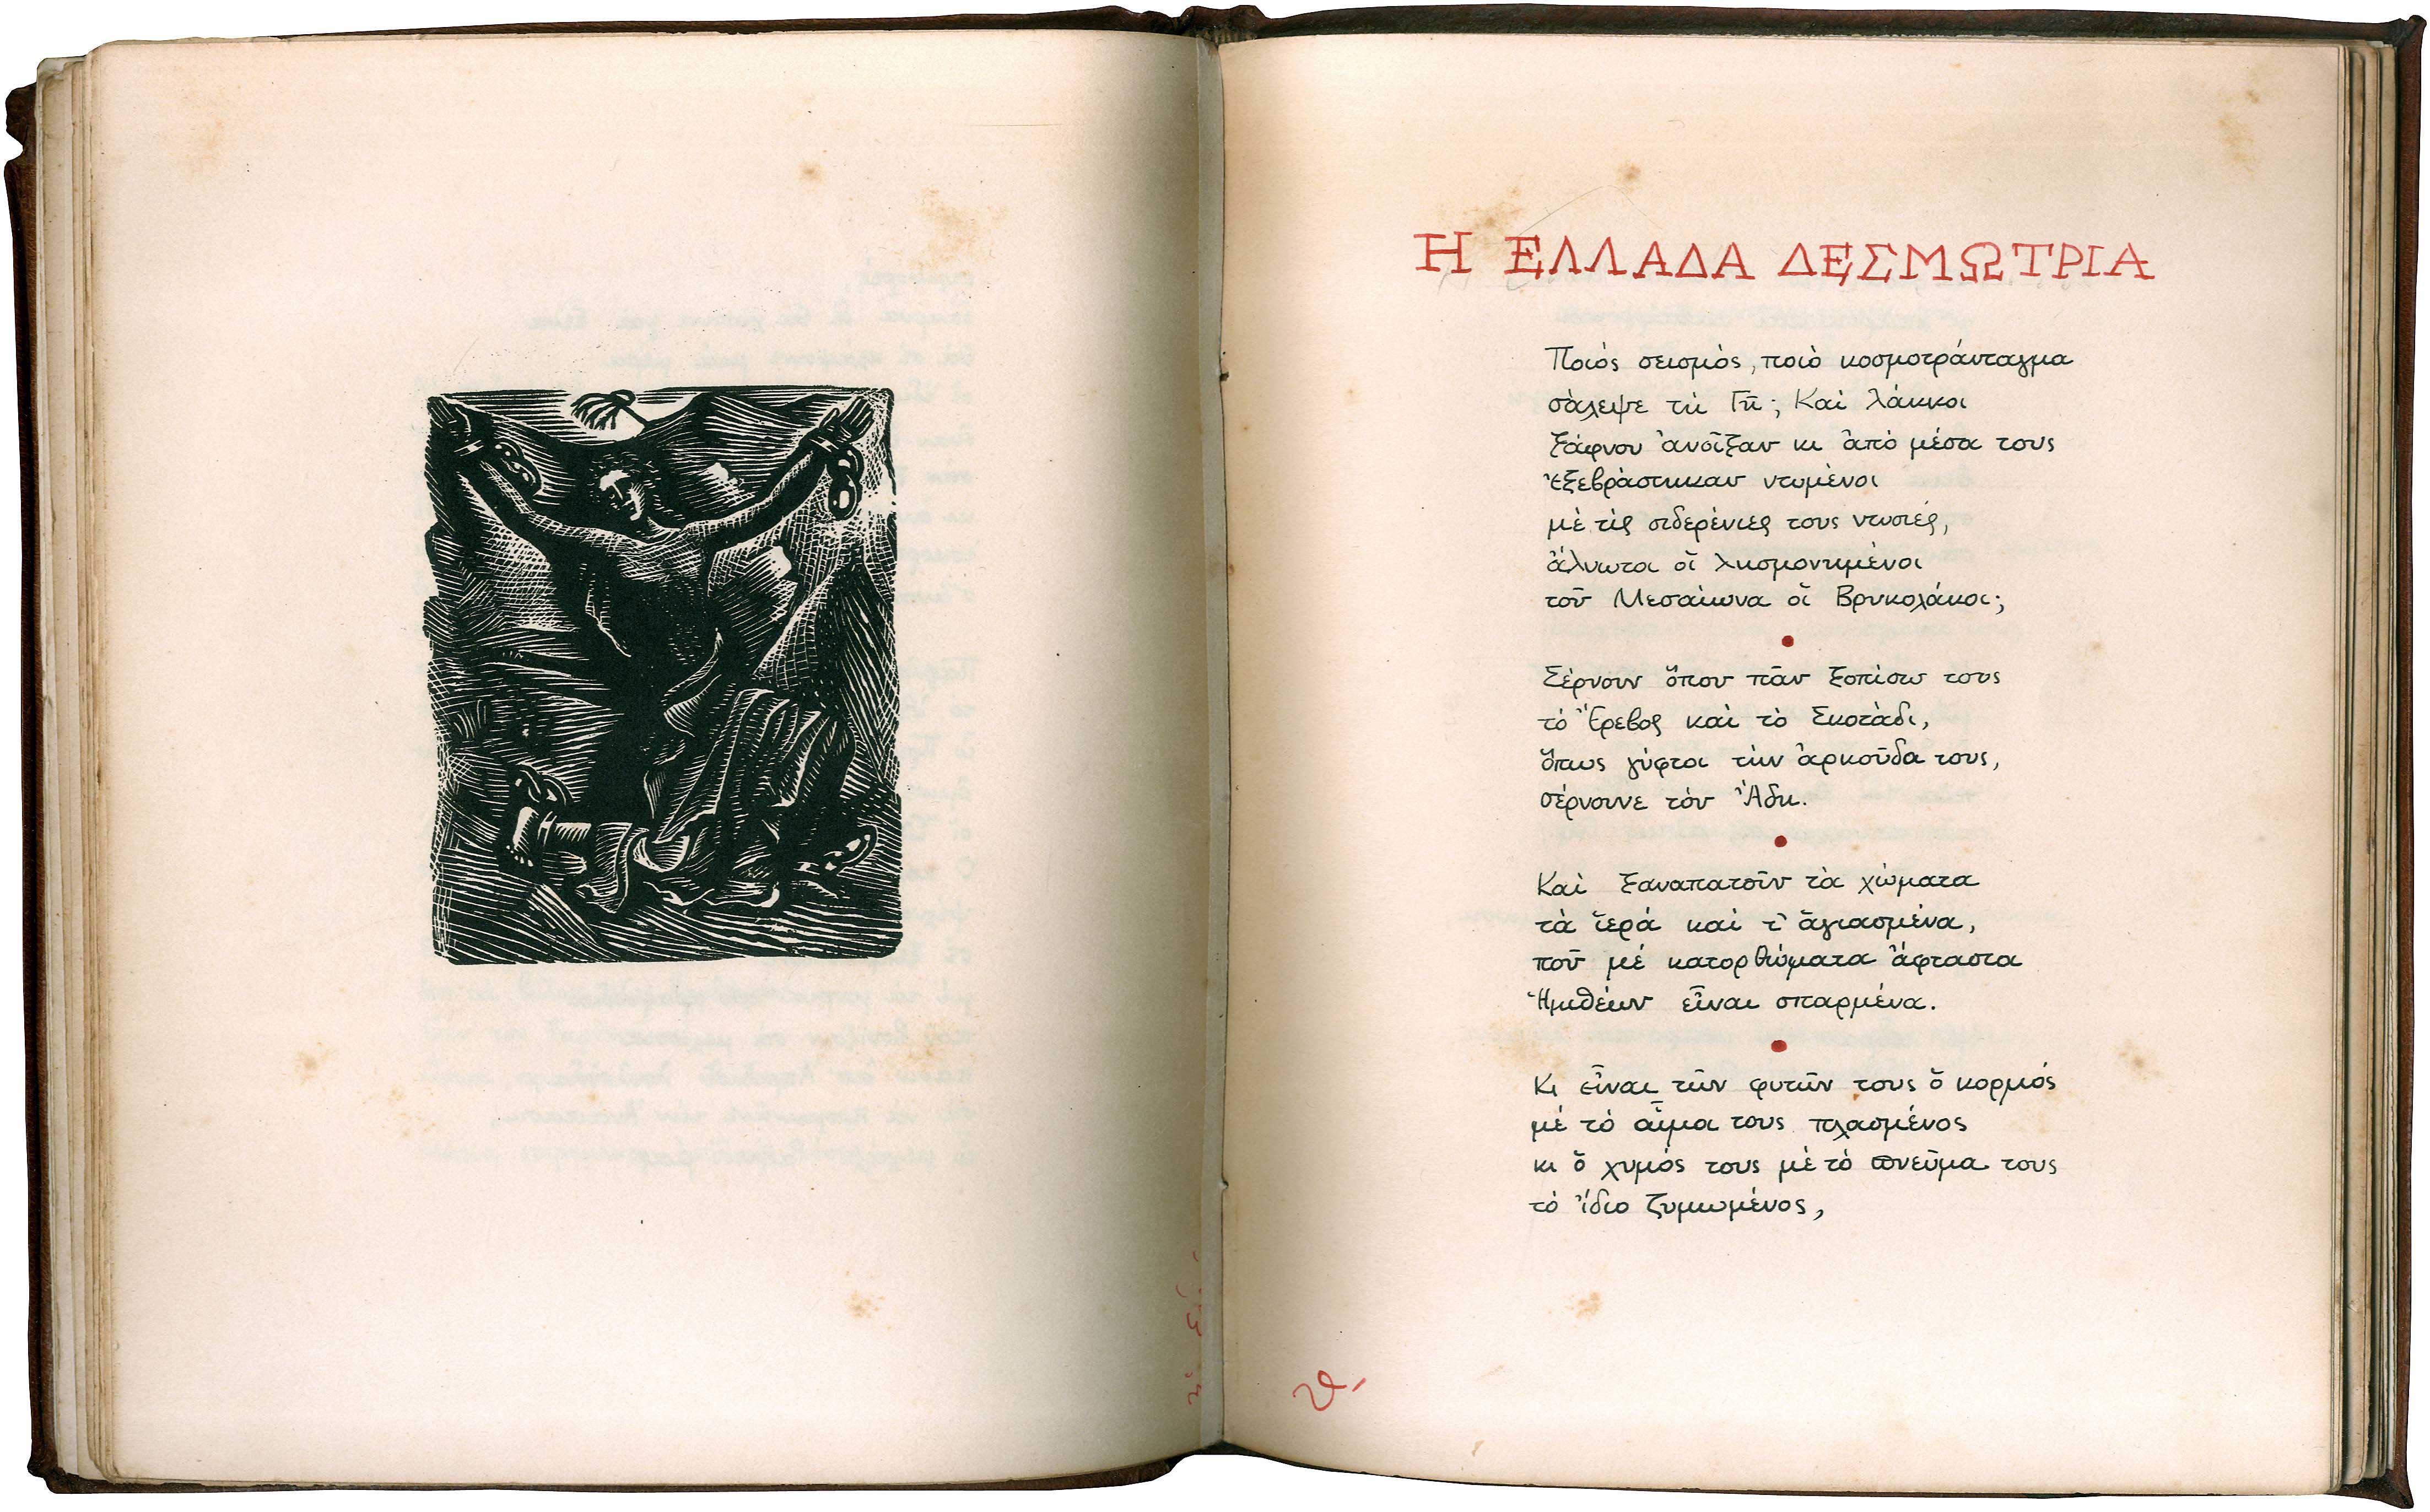 Η ΕΛΛΑΔΑ ΔΕΣΜΩΤΡΙΑ
Ποιός σεισμὸς, ποιὸ κοσμοτράνταγμα
σάλεψε τὴ Γῆ; Καὶ λάκκοι
ξάφνου ἀνοῖξαν κι ἀπὸ μέσα τους
ἐξεβράστηκαν ντυμένοι
μὲ τὶς σιδερένιες τους ντυσιές,
ἄλυωτοι οἱ λησμονημένοι
τοῦ Μεσαίωνα οἱ Βρυκολάκοι;
Σέρνουν ὅπου πᾶν ξοπίσω τους
τὸ Ἔρεβος καὶ τὸ Σκοτάδι,
ὅπως γύφτοι τὴν ἀρκοῦδα τους,
σέρνουνε τὸν Ἅδη.
Καὶ ξαναπατοῦν τὰ χώματα
τὰ ἱερά καὶ τ' ἁγιασμένα,
ποῦ μὲ κατορθώματα ἄφταστα
Ἡμιθέων εἶναι σπαρμένα.
Κι εἶναι τῶν φυτῶν τους ὁ κορμός
μὲ τὸ αἷμα τους πλασμένος
κι ὁ χυμός τους μὲ τὸ πνεῦμα τους
τὸ ἴδιο ζυμωμένος,
θ'